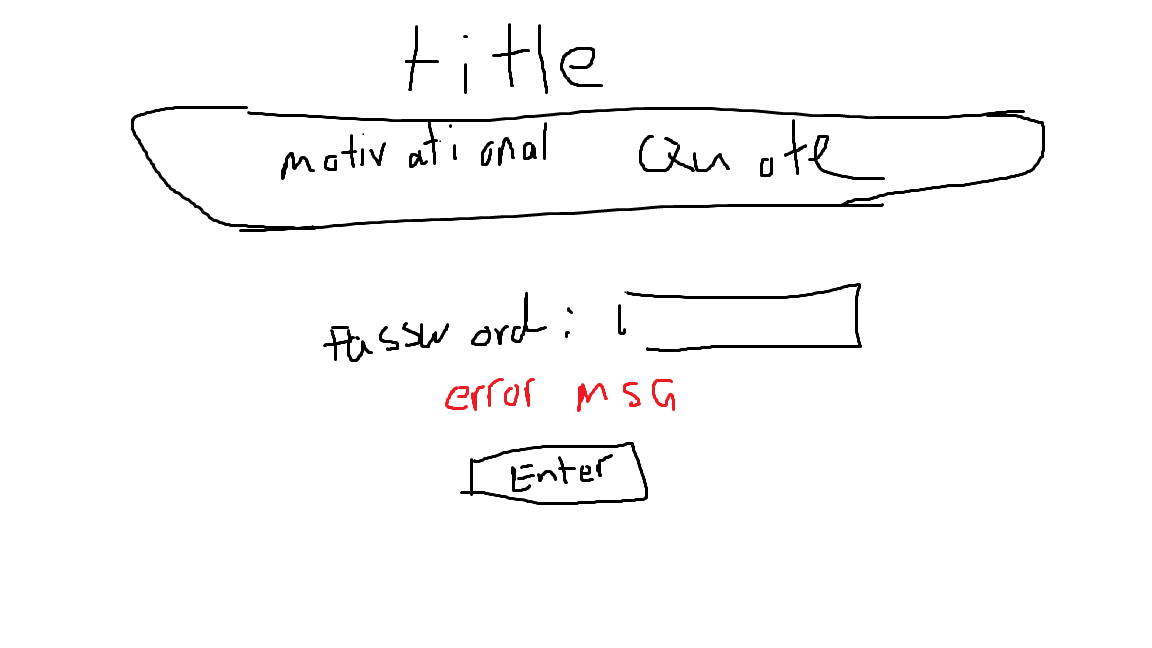 title
motivational Quote
Password:
error MSG
Enter